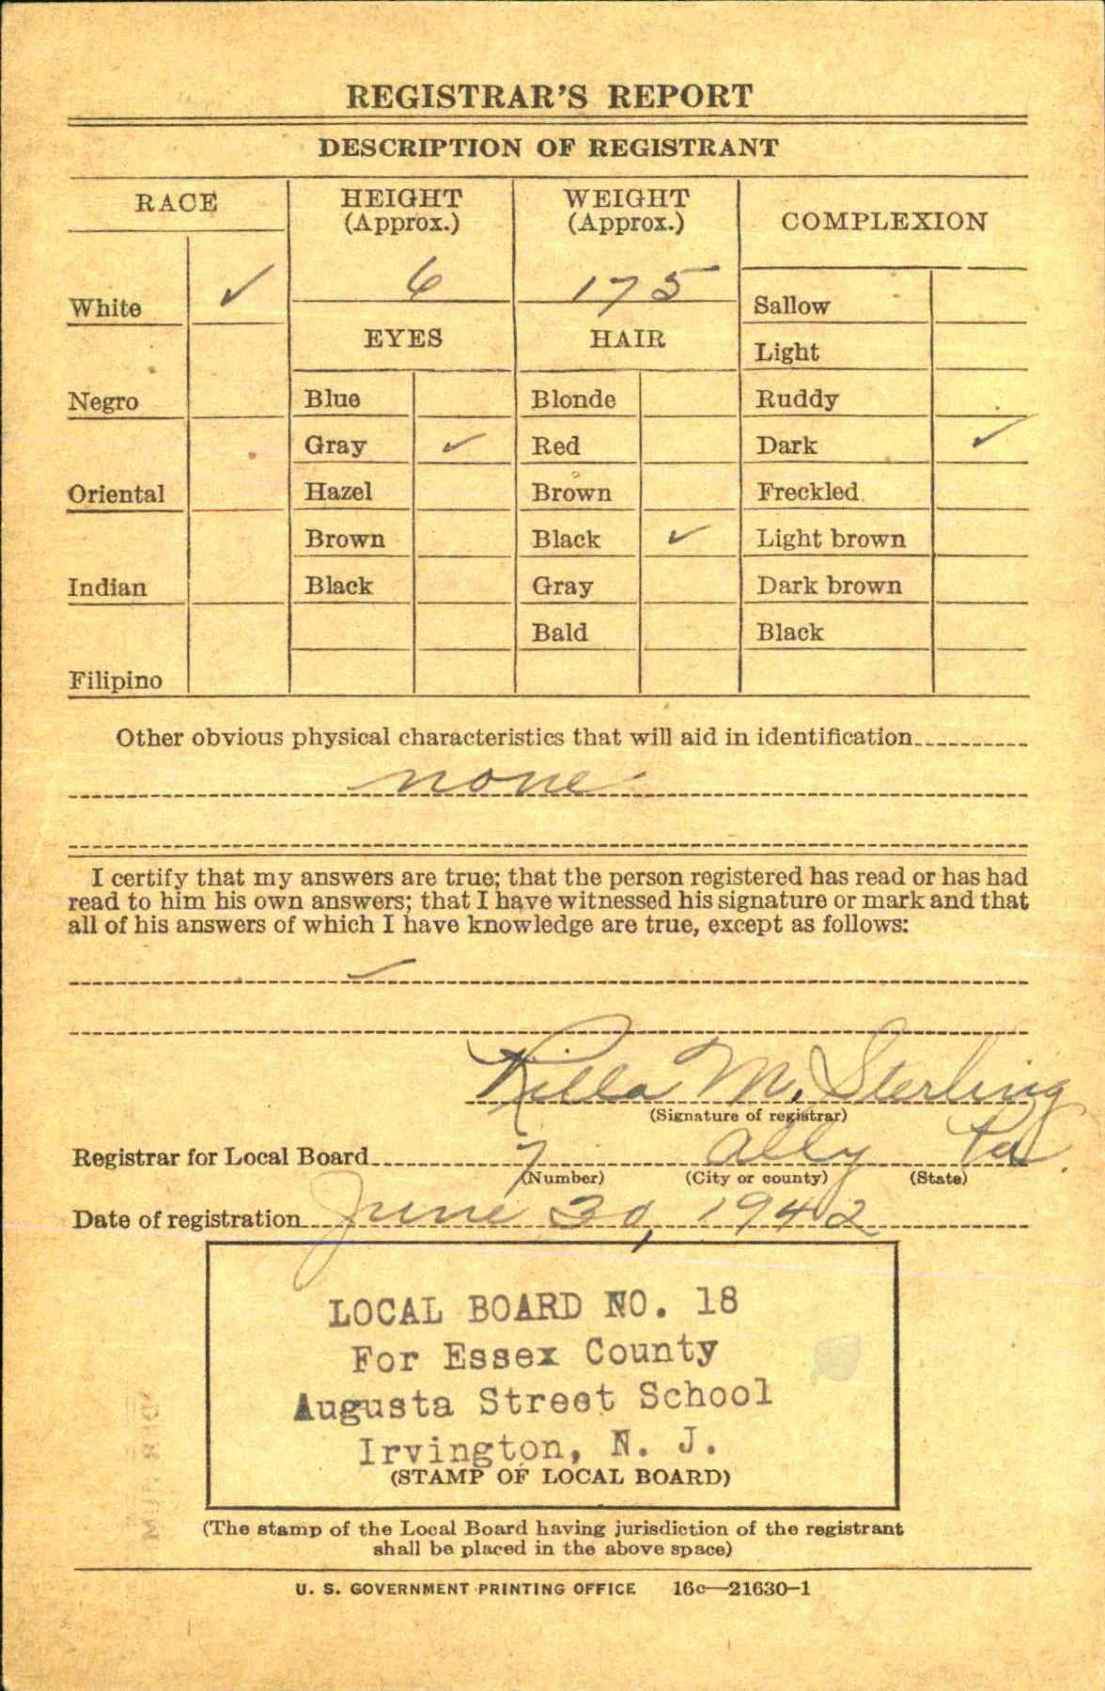 REGISTRAR'S REPORT
DESCRIPTION OF REGISTRANT
RACE
HEIGHT
(Approx.)
WEIGHT
(Approx.)
COMPLEXION
White ✓
6
175
Sallow
EYES
HAIR
Light
Negro
Blue
Blonde
Ruddy
Gray ✓
Red
Dark ✓
Oriental
Hazel
Brown
Freckled
Brown
Black ✓
Light brown
Indian
Black
Gray
Dark brown
Bald
Black
Filipino
Other obvious physical characteristics that will aid in identification
none
I certify that my answers are true; that the person registered has read or has had
read to him his own answers; that I have witnessed his signature or mark and that
all of his answers of which I have knowledge are true, except as follows:
✓
Rilla M. Sterling
(Signature of registrar)
Registrar for Local Board 7 Ally Pa.
(Number) (City or county) (State)
Date of registration June 30, 1942
LOCAL BOARD NO. 18
For Essex County
Augusta Street School
Irvington, N. J.
(STAMP OF LOCAL BOARD)
(The stamp of the Local Board having jurisdiction of the registrant
shall be placed in the above space)
U. S. GOVERNMENT PRINTING OFFICE 16c—21630-1